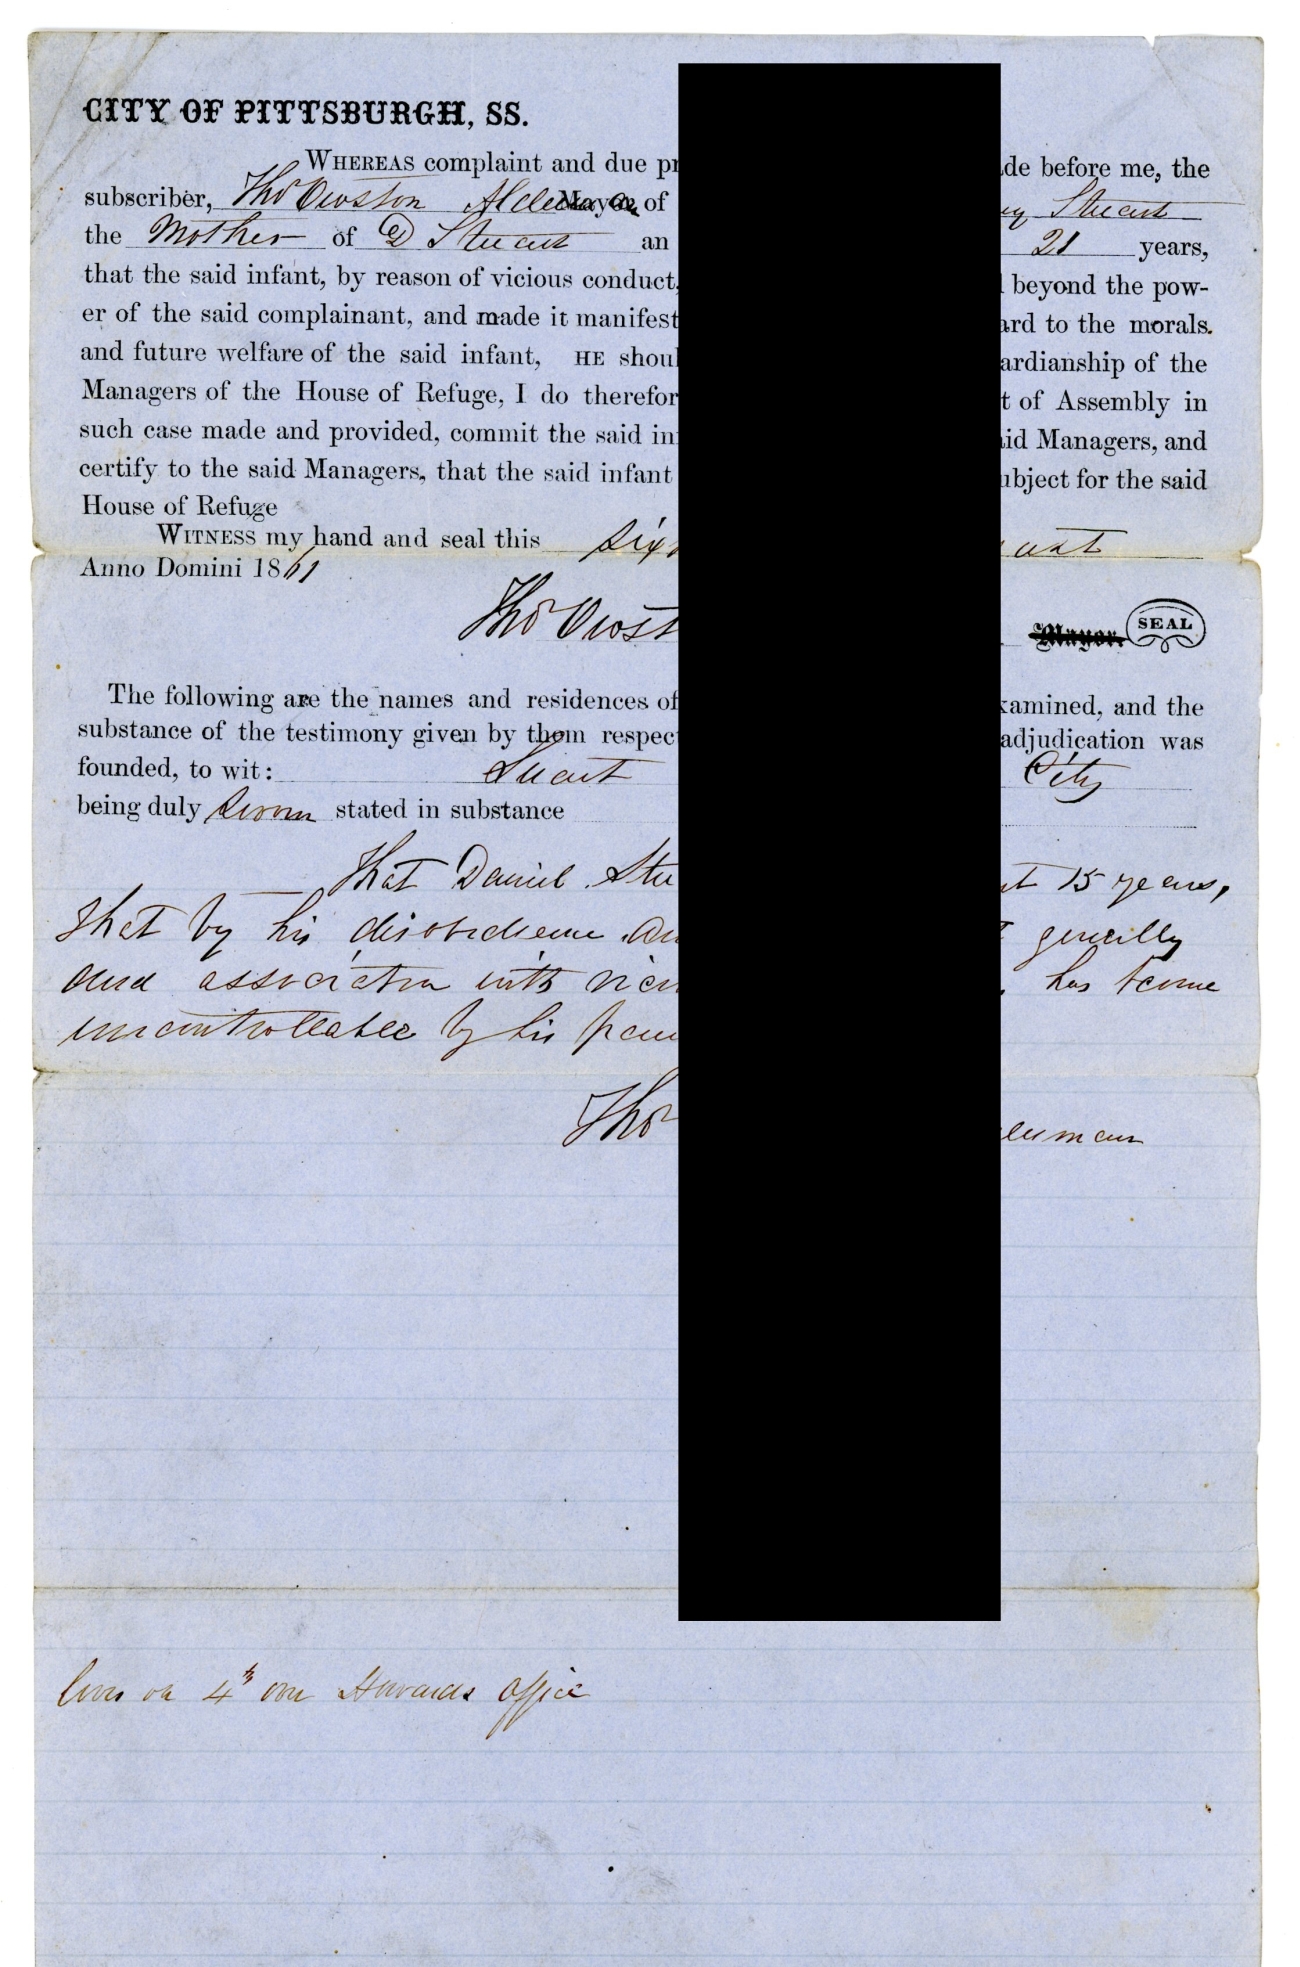 CITY OF PITTSBURGH, SS.
WHEREAS complaint and due pr de before me, the
subscriber, Thos Owston Alderman Mayor of Stuart
the Mother of D Stuart an 21 years,
that the said infant, by reason of vicious conduct, beyond the pow-
er of the said complainant, and made it manifest ard to the morals.
and future welfare of the said infant, HE shoul ardianship of the
Managers of the House of Refuge, I do therefor t of Assembly in
such case made and provided, commit the said in id Managers, and
certify to the said Managers, that the said infant ubject for the said
House of Refuge
WITNESS my hand and seal this six ust
Anno Domini 1861
Thos Owst Mayor. SEAL
The following are the names and residences of xamined, and the
substance of the testimony given by them respec adjudication was
founded, to wit: Stuart City
being duly sworn stated in substance
That Daniel Stu 15 years,
that by his disobedience an generally
and association with vici has become
uncontrollable by his par
Thos derman
lives on 4th over Howards office